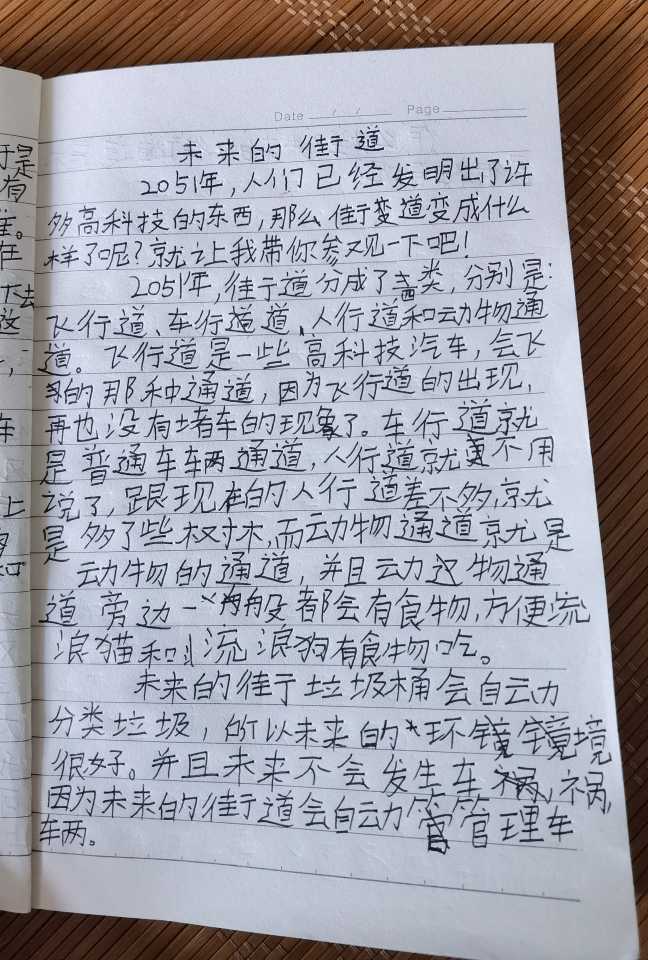 Date / / Page
未来的街道
2051年,人们已经发明出了许
多高科技的东西,那么街道变成什么
样了呢?就让我带你参观一下吧!
2051年,街道分成了类,分别是:
飞行道、车行道道、人行道和动物通
道。飞行道是一些高科技汽车,会飞
的那种通道,因为飞行道的出现,
再也没有堵车的现象了。车行道就
是普通车车两通道,人行道就更不用
说了,跟现在的人行道差不多,就
是多了些树木,而动物通道就是
动物的通道,并且动物通
道旁边一般都会有食物,方便流
浪猫和流浪狗有食物吃。
未来的街于垃圾桶会自动
分类垃圾,所以未来的环境
很好。并且未来不会发生车祸,
因为未来的街道会自动管理车
车两。
于是
有
在
下去
这
车
上